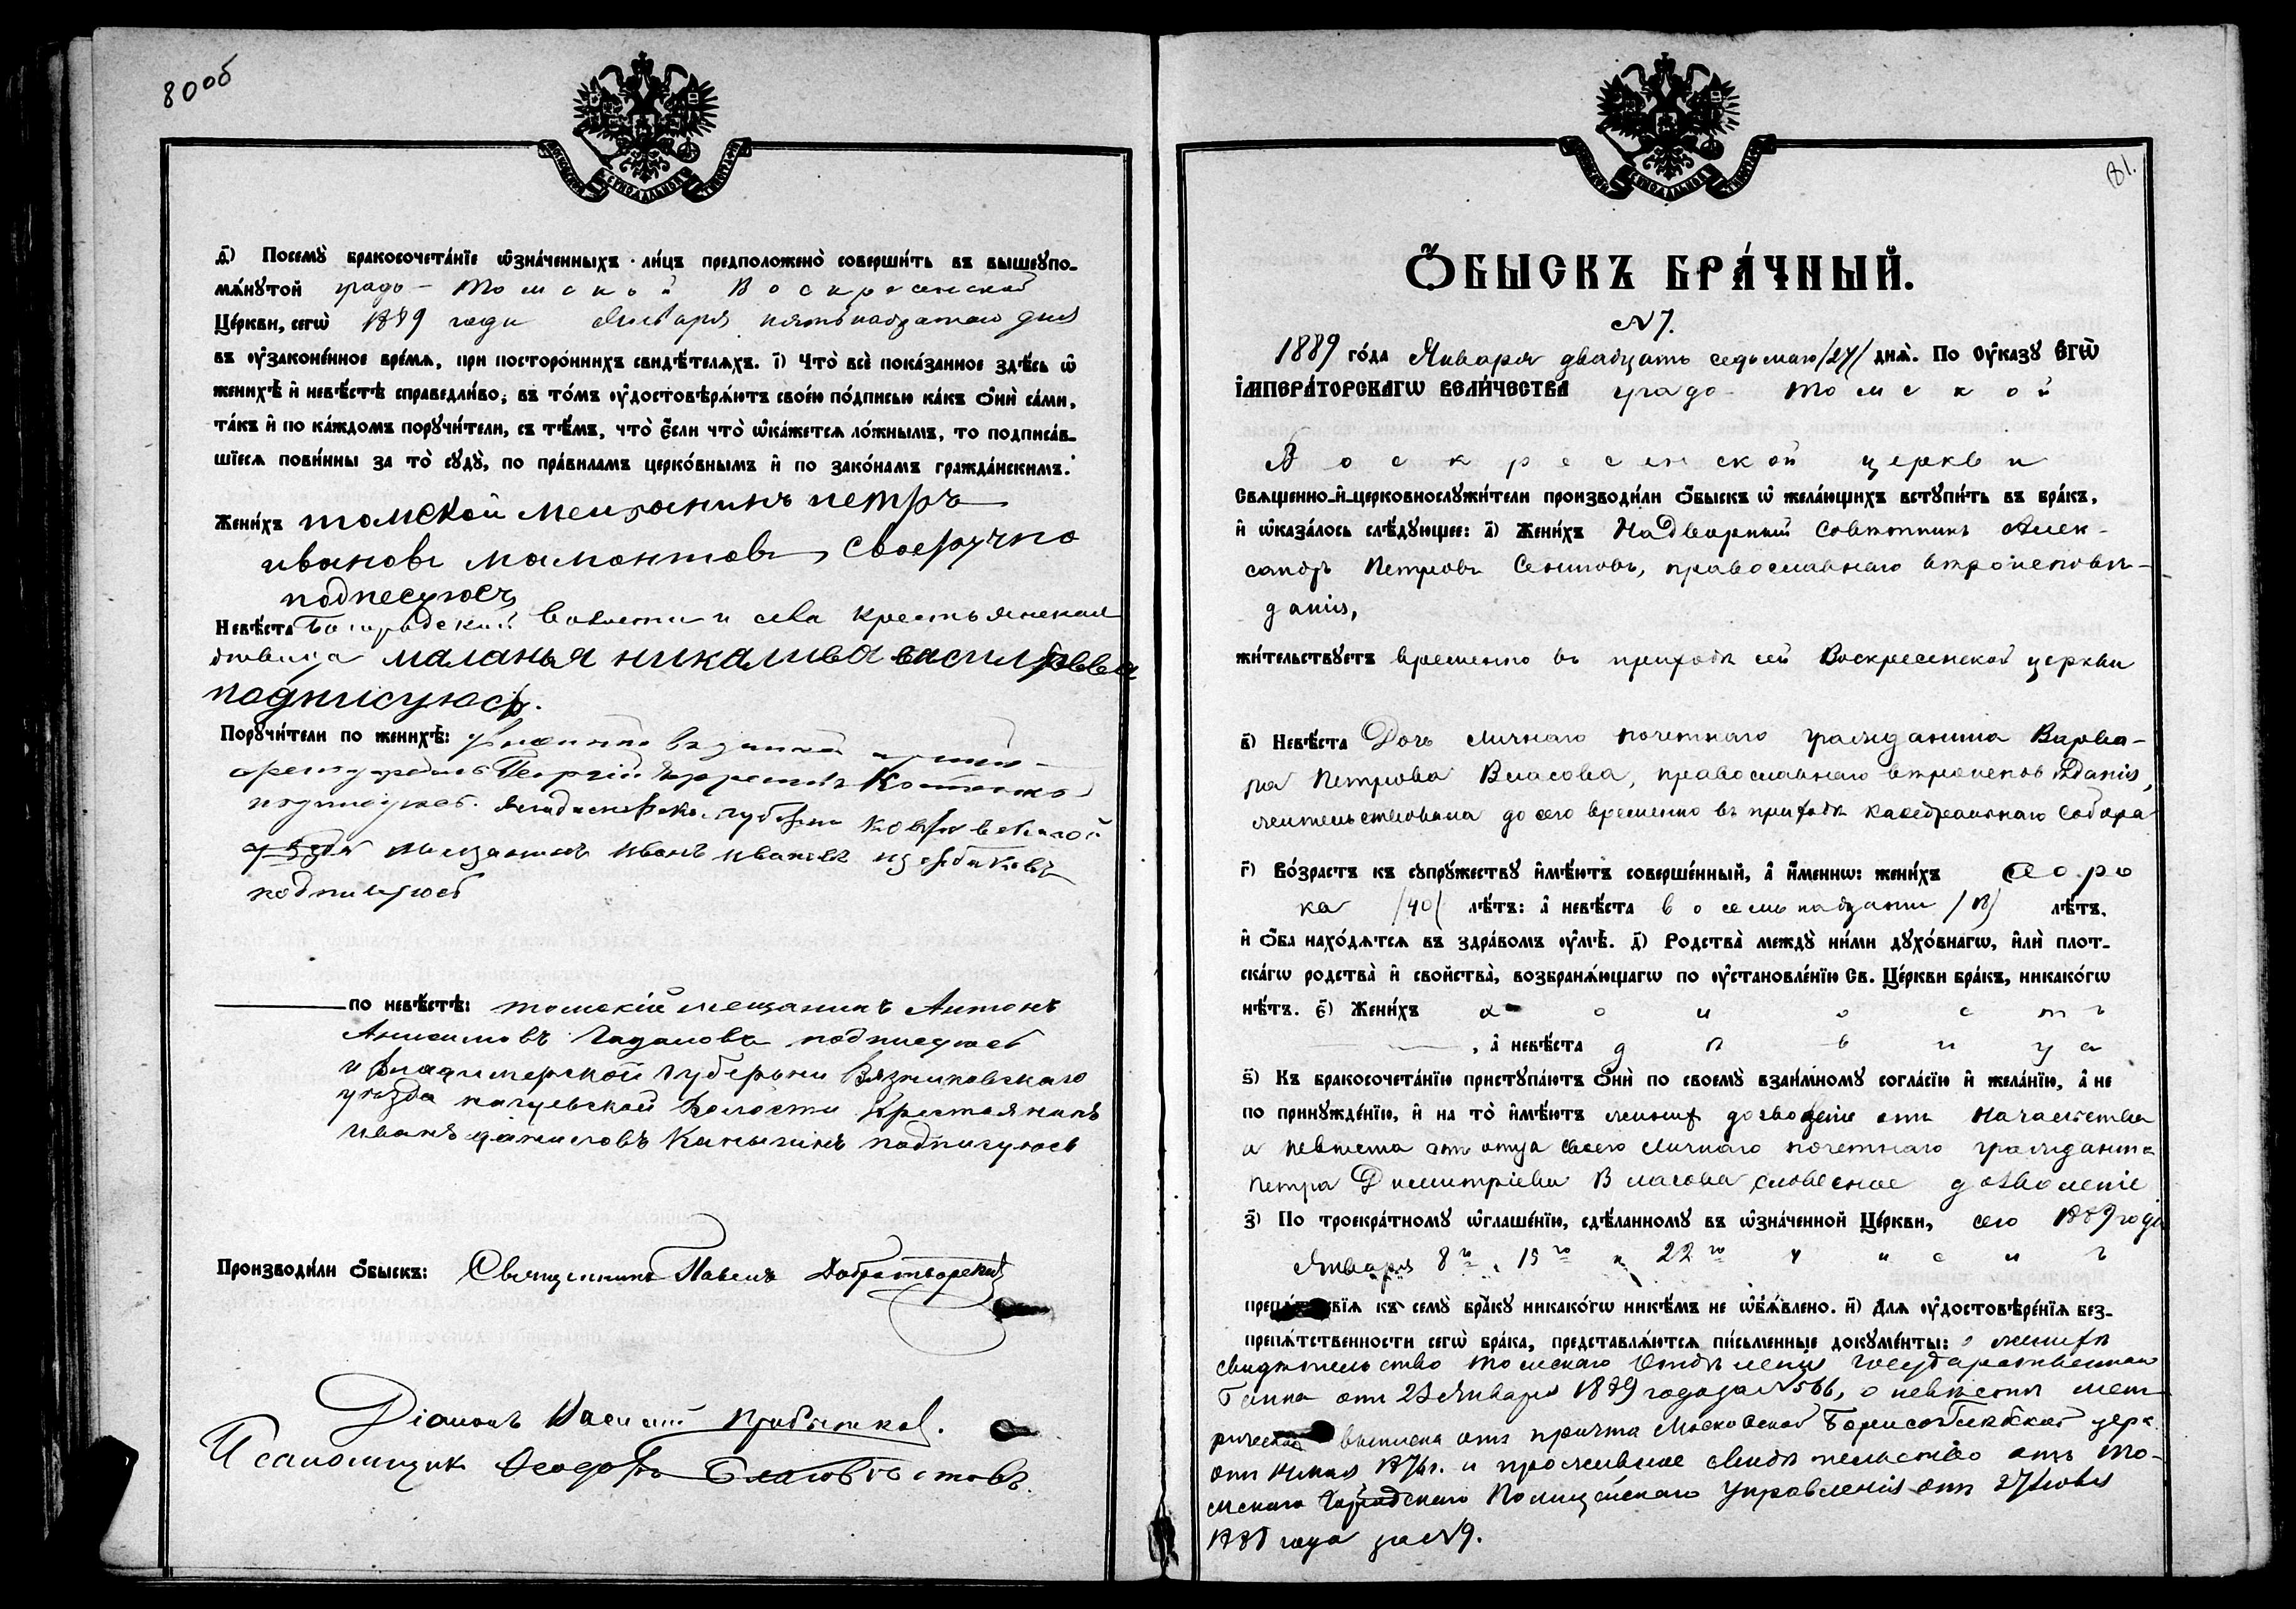 80об
д҃) Посемꙋ̀ бракосочета́нїе ѡ҆зна́ченныхъ ли́цъ предположено̀ соверши́ть въ вышеꙋпо-
мѧ́нꙋтой градо-Томской Воскресенской
Це́ркви, сегѡ̀ 1889 года Января пятнадцатаго дня
въ ᲂу҆законе́нное вре́мѧ, при посторо́ннихъ свидѣ́телѧхъ. і҃) Что̀ всѐ пока́занное здѣ́сь ѡ҆
женихѣ̀ и҆ невѣ́стѣ справедли́во, въ то́мъ ᲂу҆достовѣрѧ́ютъ свое́ю по́дписью ка́къ ѻ҆нѝ са́ми,
та́къ и҆ по ка́ждомъ порꙋчи́тели, съ тѣ́мъ, что̀ є҆́сли что̀ ѡ҆ка́жетсѧ ло́жнымъ, то подписа́в-
шїесѧ пови́нны за то̀ сꙋдꙋ̀, по пра́виламъ церко́внымъ и҆ по зако́намъ гражда́нскимъ.
Жени́хъ томской мещанинъ петръ
ивановъ мамонтовъ, своеручно
подпесуюсь
Невѣ́ста Богородской волости и села крестьянская
девица маланья никалиева василрева
подписуюсь.
Порꙋчи́тели по женихѣ̀:
Георгій
подписуюсь. губерни Ковровской
уезда мещанинъ Иванъ Ивановъ
подпишуюсь
по невѣ́стѣ: томскій мещанинъ Антонъ
Анисимовъ подписуюсь
и владимерской губерьни Вязниковскаго
уезда волости Крестьянинъ
Иванъ даниловъ подписуюсь
Производи́ли ѻ҆́быскъ: Священникъ Павелъ Добротворскій
Діаконъ Василій Прибытков.
Псаломщик Ѳеодоръ Благовѣстовъ.
81.
Ѻ҆́БЫСКЪ БРА́ЧНЫЙ.
№ 7.
1889 го́да Января двадцать седьмаго /27/ днѧ̀. По ᲂу҆ка́зꙋ Є҆ГѠ̀
І҆МПЕРА́ТОРСКАГѠ ВЕЛИ́ЧЕСТВА градо-Томской
Воскресенской церкви
Свѧще́нно-и҆-церковнослꙋжи́тели производи́ли ѻ҆́быскъ ѡ҆ жела́ющихъ встꙋпи́ть въ бра́къ,
и҆ ѡ҆каза́лось слѣ́дꙋющее: а҃) Жени́хъ Надворный Совѣтникъ Алек-
сандръ Петровъ православнаго вѣроисповѣ-
данія,
жи́тельствꙋетъ временно въ приходѣ сей Воскресенской церкви
в҃) Невѣ́ста Дочь личнаго почетнаго гражданина Варва-
ра Петрова Власова, православнаго вѣроисповѣданія,
жительствовала до сего временно въ приходѣ Каѳедральнаго Собора
г҃) Во́зрастъ къ сꙋпрꙋ́жествꙋ и҆мѣ́ютъ соверше́нный, а҆ и҆́меннѡ: жени́хъ соро
ка /40/ лѣ́тъ: а҆ невѣ́ста восемнадцати /18/ лѣ́тъ,
и҆ ѻ҆́ба нахо́дѧтсѧ въ здра́вомъ ᲂу҆мѣ̀. д҃) Родства̀ междꙋ̀ ни́ми дꙋхо́внагѡ, и҆лѝ плот-
ска́гѡ родства̀ и҆ сво́йства̀, возбранѧ́ющагѡ по ᲂу҆становле́нїю Св. Це́ркви бра́къ, никако́гѡ
нѣ́тъ. є҃) Жени́хъ холостъ
, а҆ невѣ́ста дѣвица
ѕ҃) Къ бракосочета́нїю пристꙋпа́ютъ ѻ҆нѝ по своемꙋ̀ взаи́мномꙋ согла́сїю и҆ жела́нїю, а҆ не
по принꙋжде́нїю, и҆ на то̀ и҆мѣ́ютъ жених дозволеніе отъ начальства
а невѣста отъ отца своего личнаго почетнаго гражданина
Петра Димитріева Власова словесное дозволеніе
з҃) По троекра́тномꙋ ѡ҆глаше́нїю, сдѣ́ланномꙋ въ ѡ҆зна́ченной Це́ркви, сего 1889 года
Января 8го, 15го и 22го чиселъ
препѧ́тствїѧ къ семꙋ̀ бра́кꙋ никако́гѡ никѣ́мъ не ѡ҆б̾ѧ́влено. и҃) Длѧ ᲂу҆достовѣре́нїѧ без-
препѧ́тственности сегѡ̀ бра́ка, представлѧ́ютсѧ пи́сьменные докꙋме́нты: о женихѣ
свидѣтельство Томскаго Отдѣленія Государственнаго
Банка отъ 23 Января 1889 года за № 566, о невѣстѣ мет-
рическая выписка отъ причта Московской Борисоглѣбской церк.
отъ 1874г. и проживное свидѣтельство отъ То-
мскаго Городскаго Полицейскаго Управленія отъ 27
года за № 9.